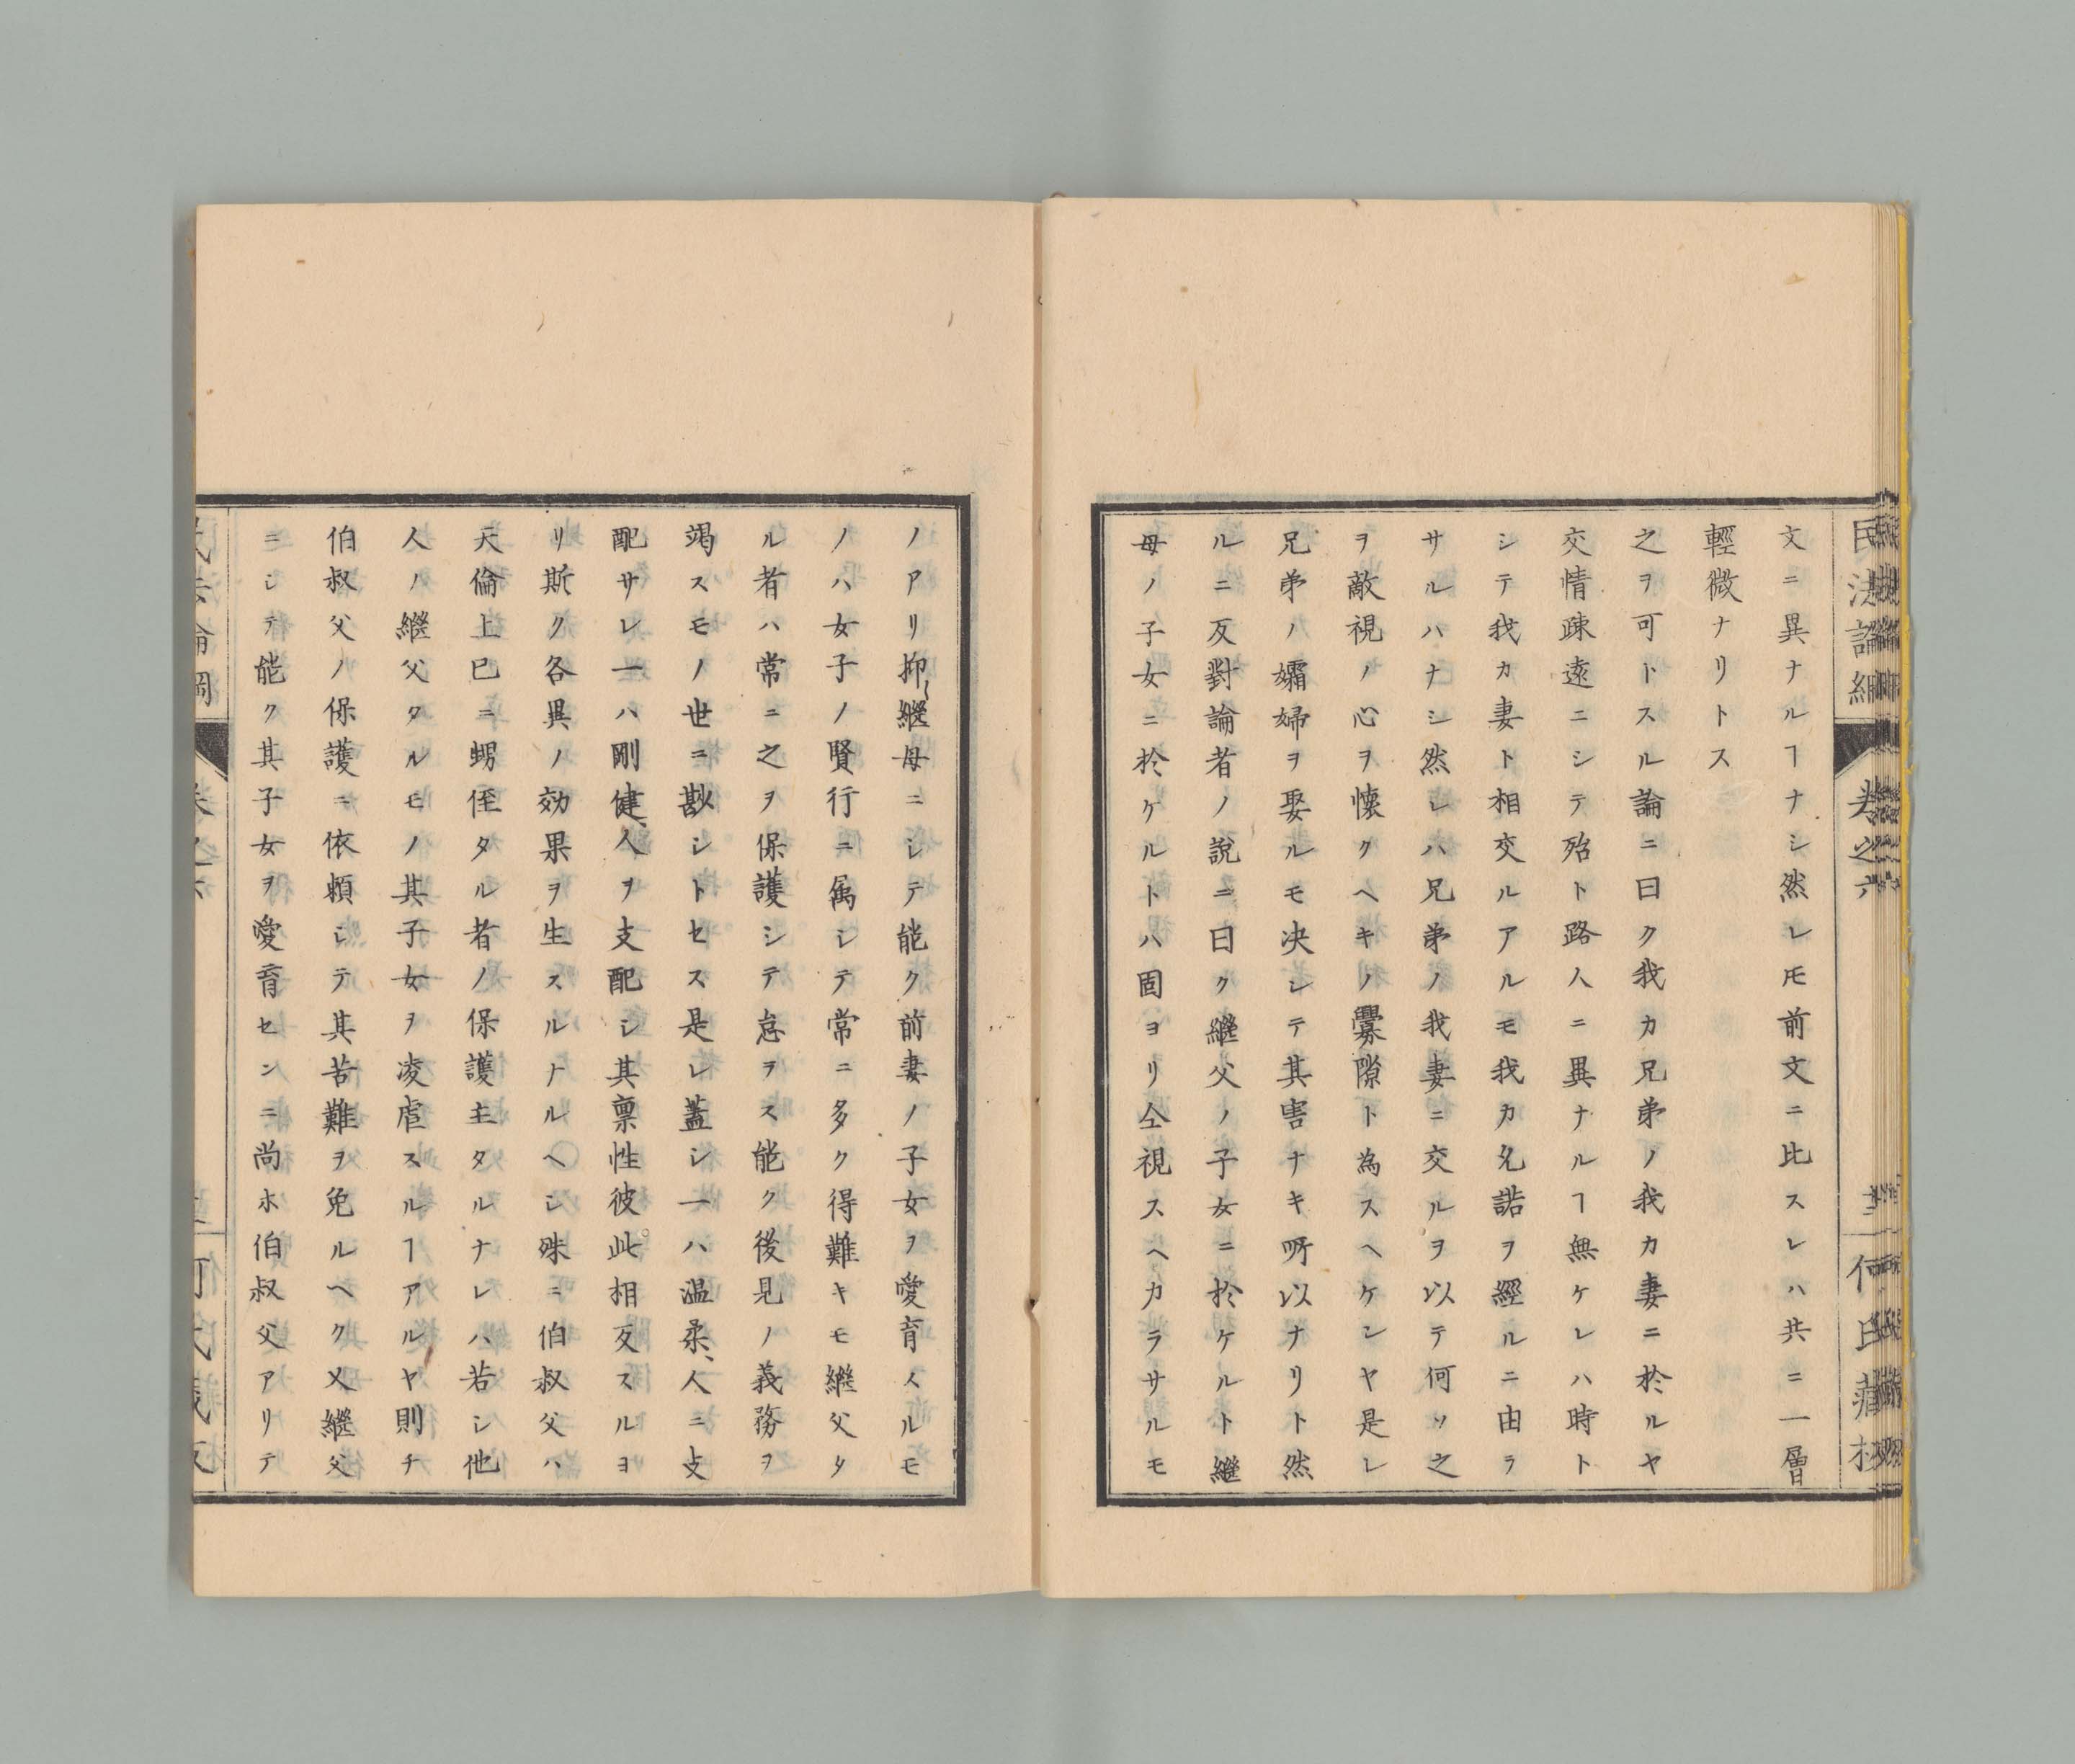 民法論綱
卷之六
文ニ異ナルヿナシ然レ𪜈前文ニ比スレハ共ニ一層
輕微ナリトス
之ヲ可トスル論ニ曰ク我カ兄弟ノ我カ妻ニ於ルヤ
交情疎遠ニシテ殆ト路人ニ異ナルヿ無ケレハ時ト
シテ我カ妻ト相交ルアルモ我カ允諾ヲ經ルニ由ラ
サルハナシ然レハ兄弟ノ我妻ニ交ルヲ以テ何ソ之
ヲ敵視ノ心ヲ懐クヘキノ釁隙ト為スヘケンヤ是レ
兄弟ノ孀婦ヲ娶ルモ决シテ其害ナキ所以ナリト然
ルニ反對論者ノ說ニ曰ク繼父ノ子女ニ於ケルト繼
母ノ子女ニ於ケルトハ固ヨリ仝視スヘカラサルモ
ノアリ抑繼母ニシテ能ク前妻ノ子女ヲ愛育スルモ
ノハ女子ノ賢行ニ属シテ常ニ多ク得難キモ繼父タ
ル者ハ常ニ之ヲ保護シテ怠ヲス能ク後見ノ義務ヲ
竭スモノ世ニ尠シトセス是レ蓋シ一ハ温柔、人ニ支
配サレ一ハ剛健、人ヲ支配シ其禀性彼此相反スルヨ
リ斯ク各異ノ効果ヲ生スルナルヘシ殊ニ伯叔父ハ
天倫上已ニ甥侄タル者ノ保護主タルナレハ若シ他
人ノ繼父タルモノ其子女ヲ凌虐スルヿアルヤ則チ
伯叔父ノ保護ニ依頼シテ其苦難ヲ免ルヘク又繼父
ニシテ能ク其子女ヲ愛育センニ尚ホ伯叔父アリテ